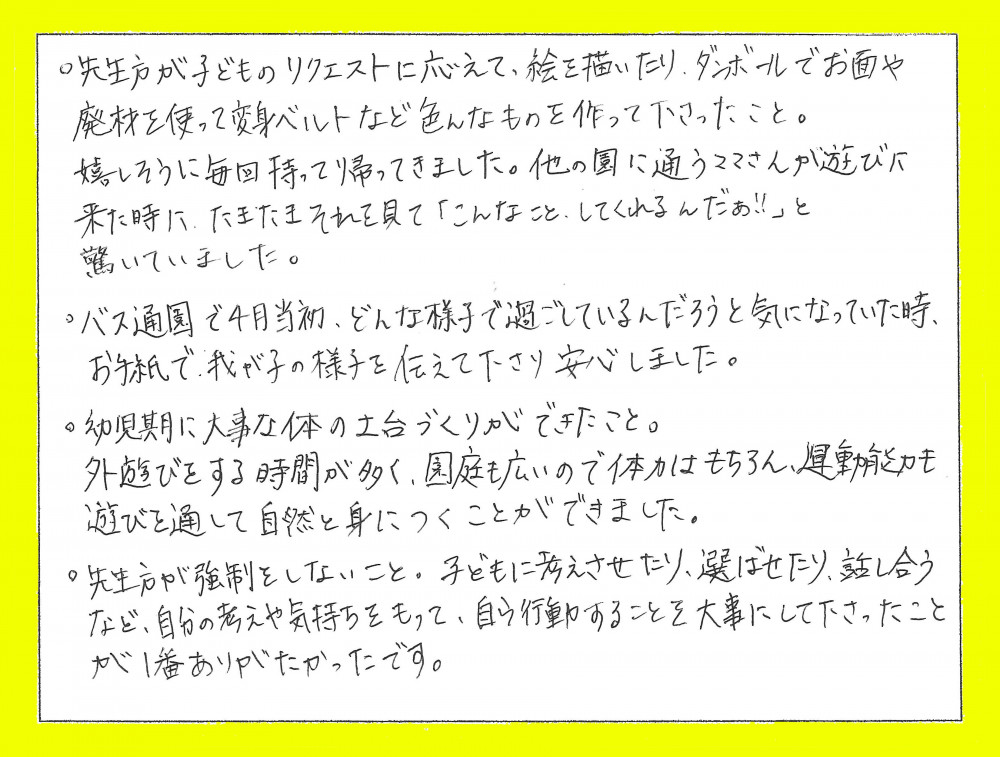 ○先生方が子どものリクエストに応えて、絵を描いたり、ダンボールでお面や
廃材を使って変身ベルトなど色んなものを作って下さったこと。
嬉しそうに毎回持って帰ってきました。他の園に通うママさんが遊びに
来た時に、たまたまそれを見て「こんなこと、してくれるんだぁ!!」と
驚いていました。
○バス通園で4月当初、どんな様子で過ごしているんだろうと気になっていた時、
お手紙で、我が子の様子を伝えて下さり安心しました。
○幼児期に大事な体の土台づくりができたこと。
外遊びをする時間が多く、園庭も広いので体力はもちろん、運動能力も
遊びを通して自然と身につくことができました。
○先生方が強制をしないこと。子どもに考えさせたり、選ばせたり、話し合う
など、自分の考えや気持ちをもって、自ら行動することを大事にして下さったこと
が1番ありがたかったです。